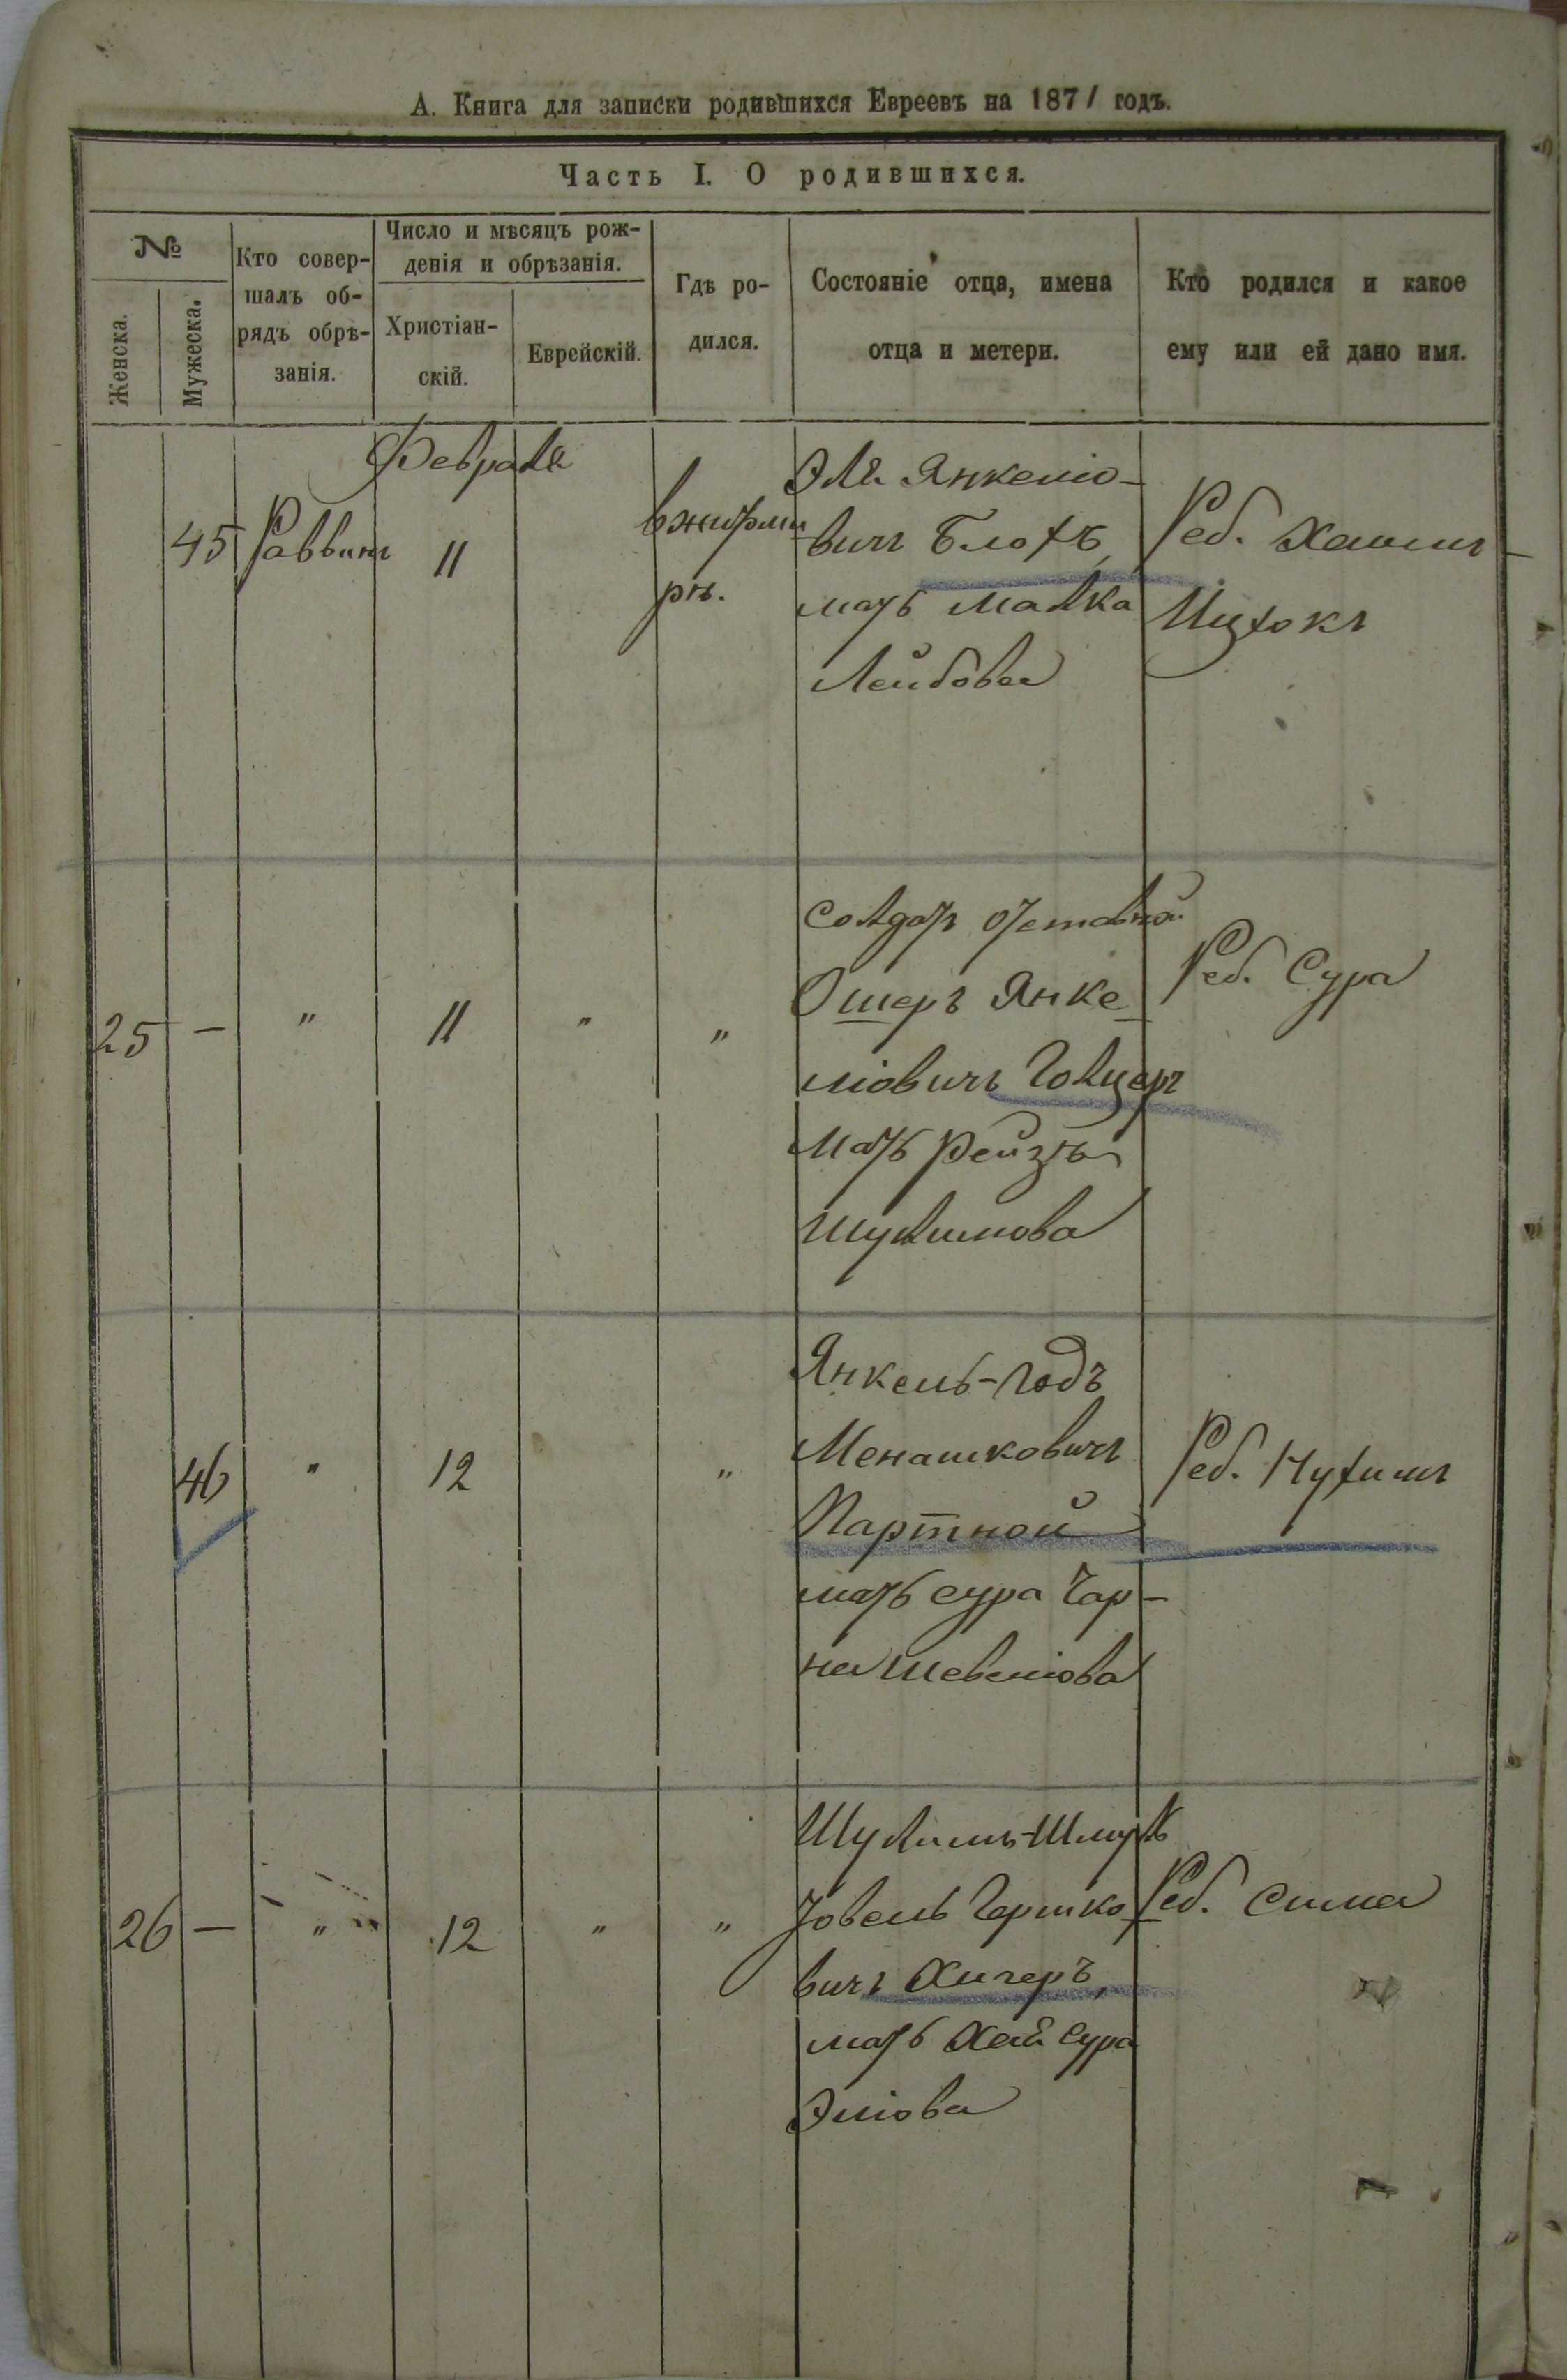 А. Книга для записки родившихся Евреевъ на 1871 годъ.
Часть I. О родившихся.
№
Женска.
Мужеска.
Кто совер-
шалъ об-
рядъ обрѣ-
занія.
Число и мѣсяцъ рож-
денія и обрѣзанія.
Христіан-
скій.
Еврейскій.
Гдѣ ро-
дился.
Состояніе отца, имена
отца и метери.
Кто родился и какое
ему или ей дано имя.
Февраля
45 Раввинъ 11
вжитоми
рѣ.
Эля Янкеліо-
вичъ Блохъ,
мать Малка
Лейбова
Реб. Хаимъ-
Ицхокъ
25 — " 11 " "
Солдатъ отставной
Ошеръ Янке-
ліовичъГолцеръ
мать Рейзъ
Шулимова
Реб. Сура
46 " 12 "
Янкель-Годъ
Менашковичъ
Партной
мать Сура Чар-
на Шевеліова
Реб. Нухимъ
26 — " 12 " "
Шулимъ-Шмуль
Іовель Гершко-
вичъ Хигеръ,
мать Хая Сура
Эліова
Реб. Сима